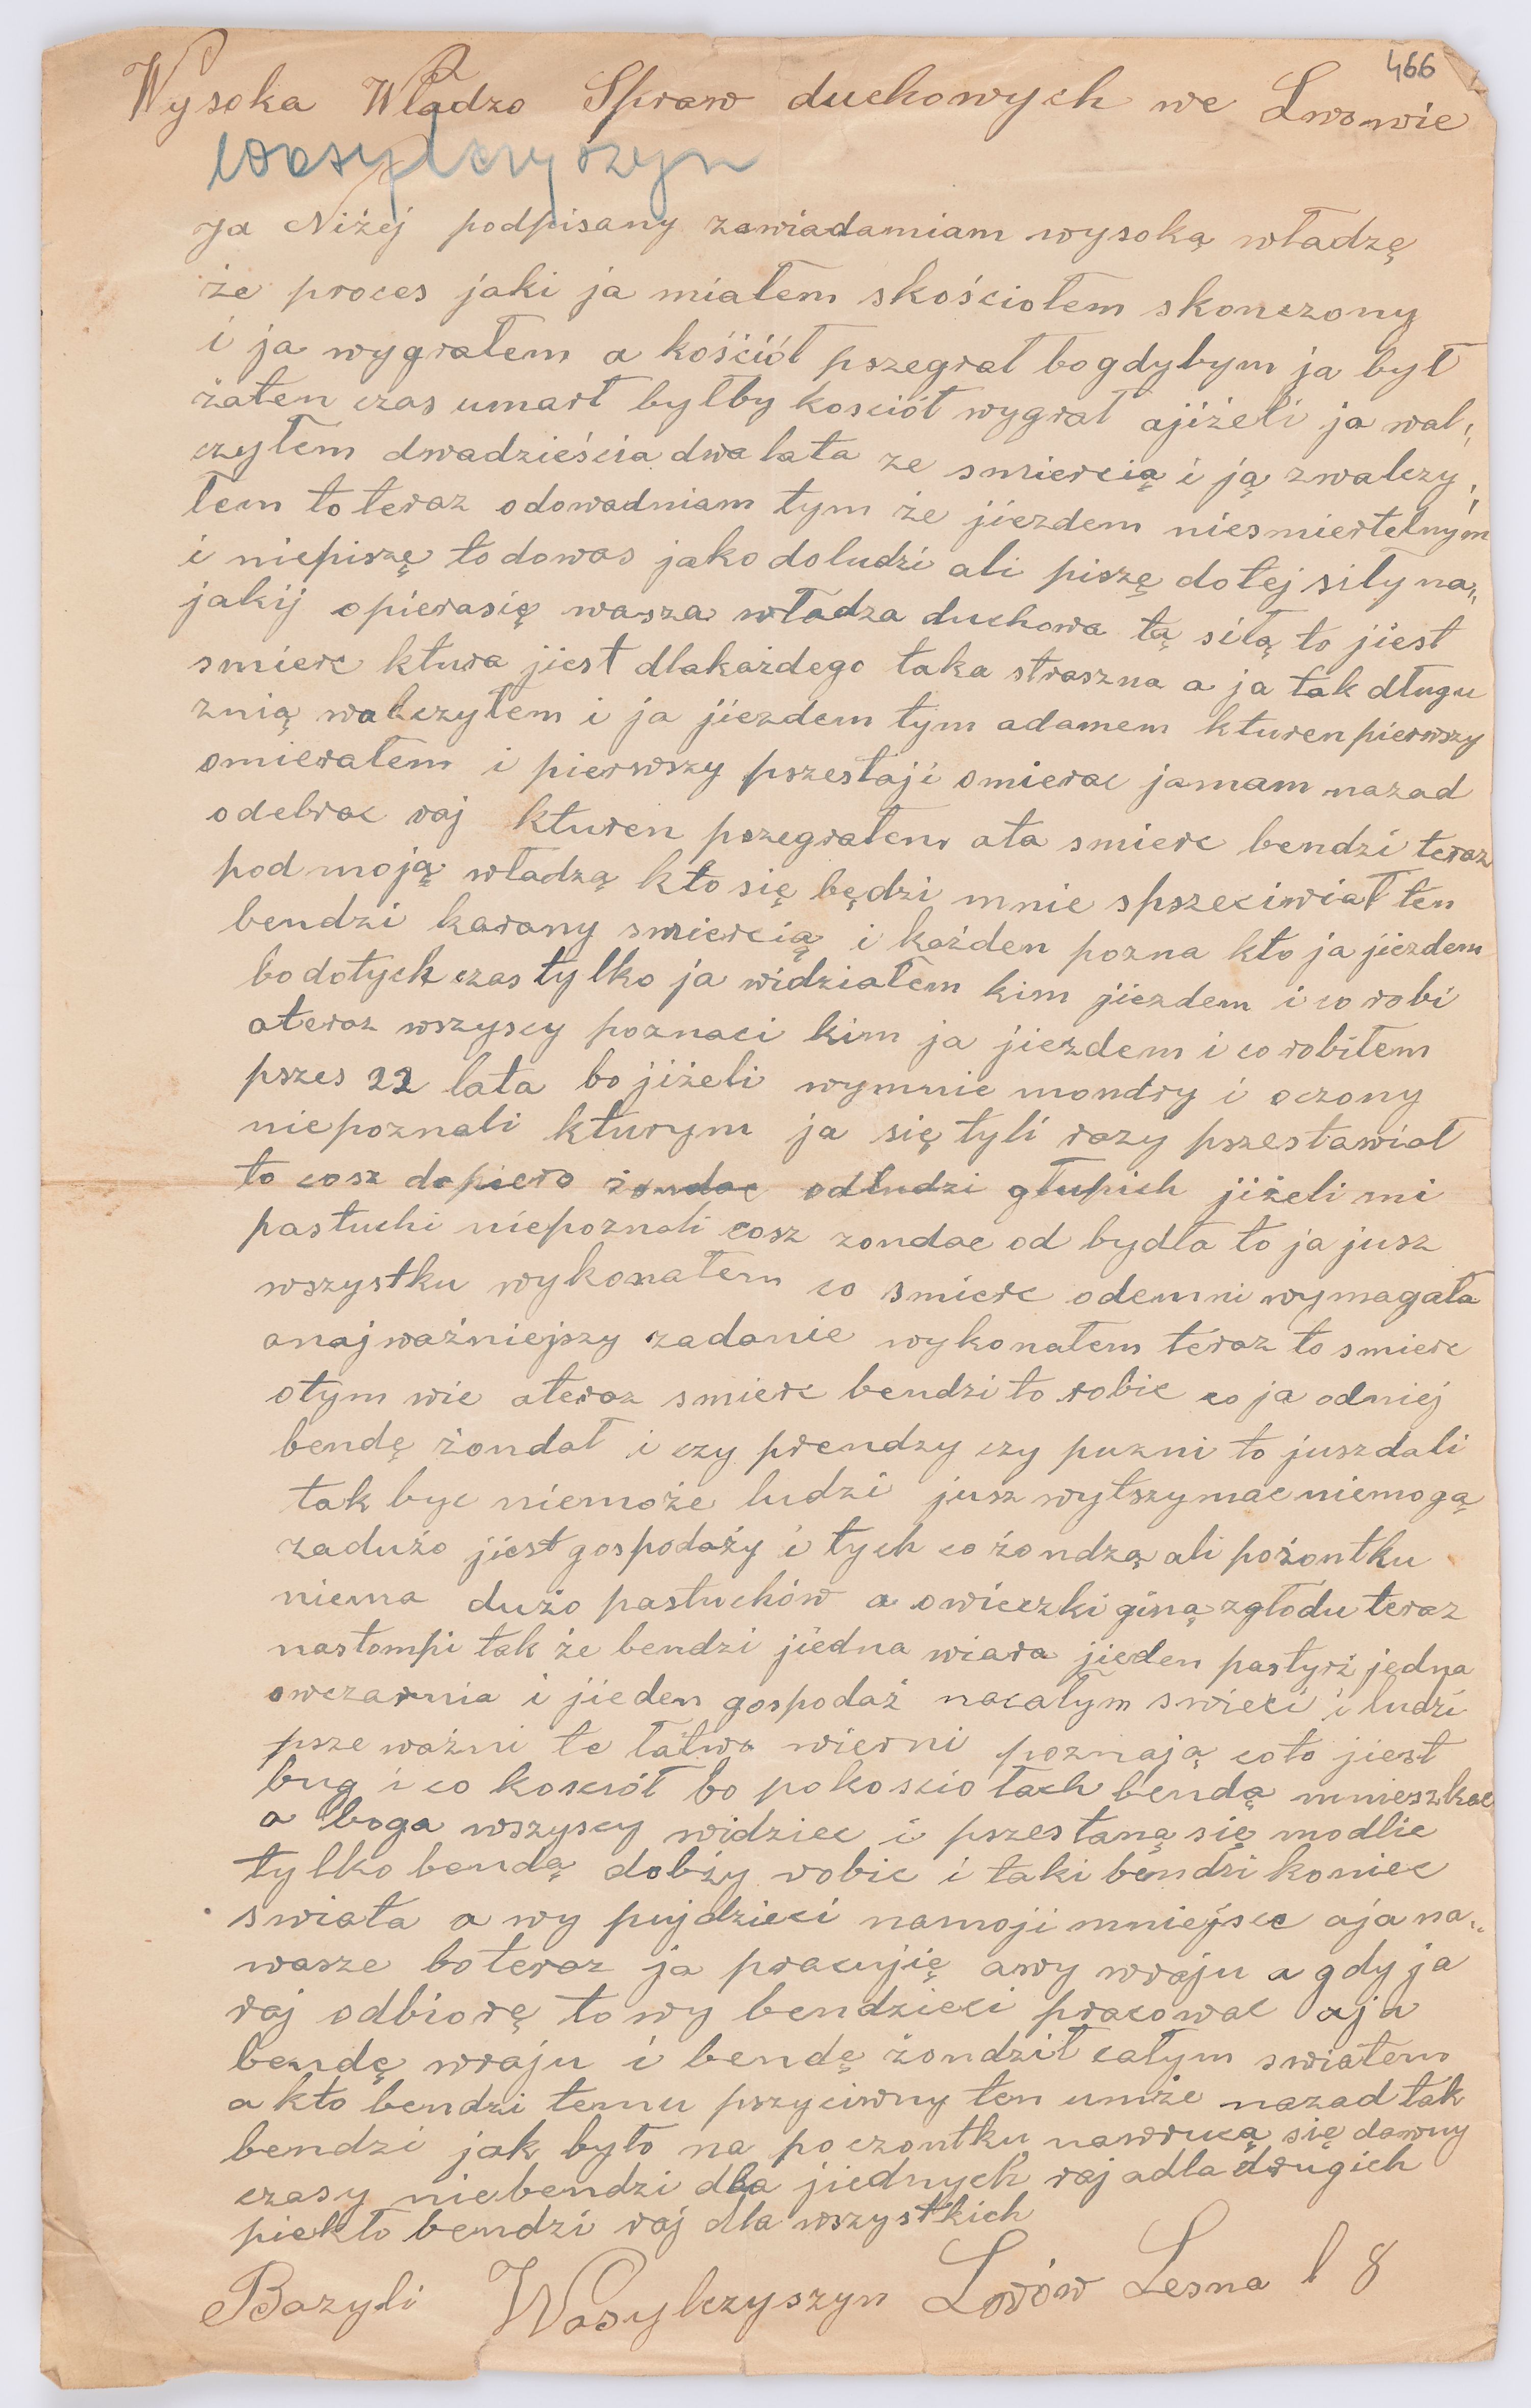 466
Wysoka Władzo Spraw duchowych we Lwowie
wasylczyszyn
Ja Niżej podpisany zawiadamiam wysoką władzę
że proces jaki ja miałem skościołem skonczony
i ja wygrałem a kościół pszegrał bogdybym ja był
załen czas umarł byłby kosciół wygrał ajiżeli ja wal„
czyłem dwadzieścia dwa lata ze smiercią i ją zwalczy„
łem to teraz odowadniam tym że jiezdem niesmiertelnym
i niepiszę todowas jako doludzi ali piszę dotej siły na„
jakij opierasię wasza władza duchowa tą siłą to jiest
smierc ktura jiest dlakażdego taka straszna a ja tak długu
znią walczyłem i ja jiezdem tym adamem kturen pierwszy
omierałem i pierwszy pszestaji omierac jamam nazad
odebrac raj kturen pszegrałem ata smierc bendzi teraz
pod moją władzą kto się będzi mnie spszeciwiał ten
bendzi karany smiercią i każden pozna kto ja jiezdem
bo dotych czas tylko ja widziałem kim jiezdem i co robi
ateraz wszyscy poznaci kim ja jiezdem i co robiłem
pszes 22 lata bo jiżeli wymnie mondry i oczony
niepoznali kturym ja się tyli razy pszestawiał
to cosz dopiero żondac odludzi głupich jiżeli mi
pastuchi niepoznali cosz zondac od bydła to ja jusz
wszystku wykonałem co smierc odemni wymagała
anajważniejszy zadanie wykonałem teraz to smierc
otym wie ateraz smierc bendzi to robic co ja odniej
bendę żondał i czy prendzy czy puzni to jusz dali
tak byc niemoże ludzi jusz wytszymac niemogą
zadużo jiest gospodaży i tych co żondzą ali pożontku
niema dużo pastuchów a owieczki giną zgłodu teraz
nastompi tak że bendzi jiedna wiara jieden pastyrż jedna
owczarnia i jieden gospodaż nacałym swieci i ludzi
pszeważni te łatwo wierni poznają coto jiest
bug i co kosciół bo pokosciołach bendą mnieszkac
a boga wszyscy widziec i pszestaną się modlic
tylko bendą dobży robic i taki bendzi koniec
swiata a wy pujdzieci namoji mniejsce aja na„
wasze boteraz ja pracujię awy wraju a gdy ja
raj odbiorę to wy bendzieci pracowac aja
bendę wraju i bendę żondził całym swiatem
a kto bendzi temu pszyciwny ten umże nazad tak
bendzi jak było na poczontku nawrucą się dawny
czasy niebendzi dla jiednych raj adla drugich
piekło bendzi raj dla wszystkich
Bazyli Wasylczyszyn Lwów Lesna l 8